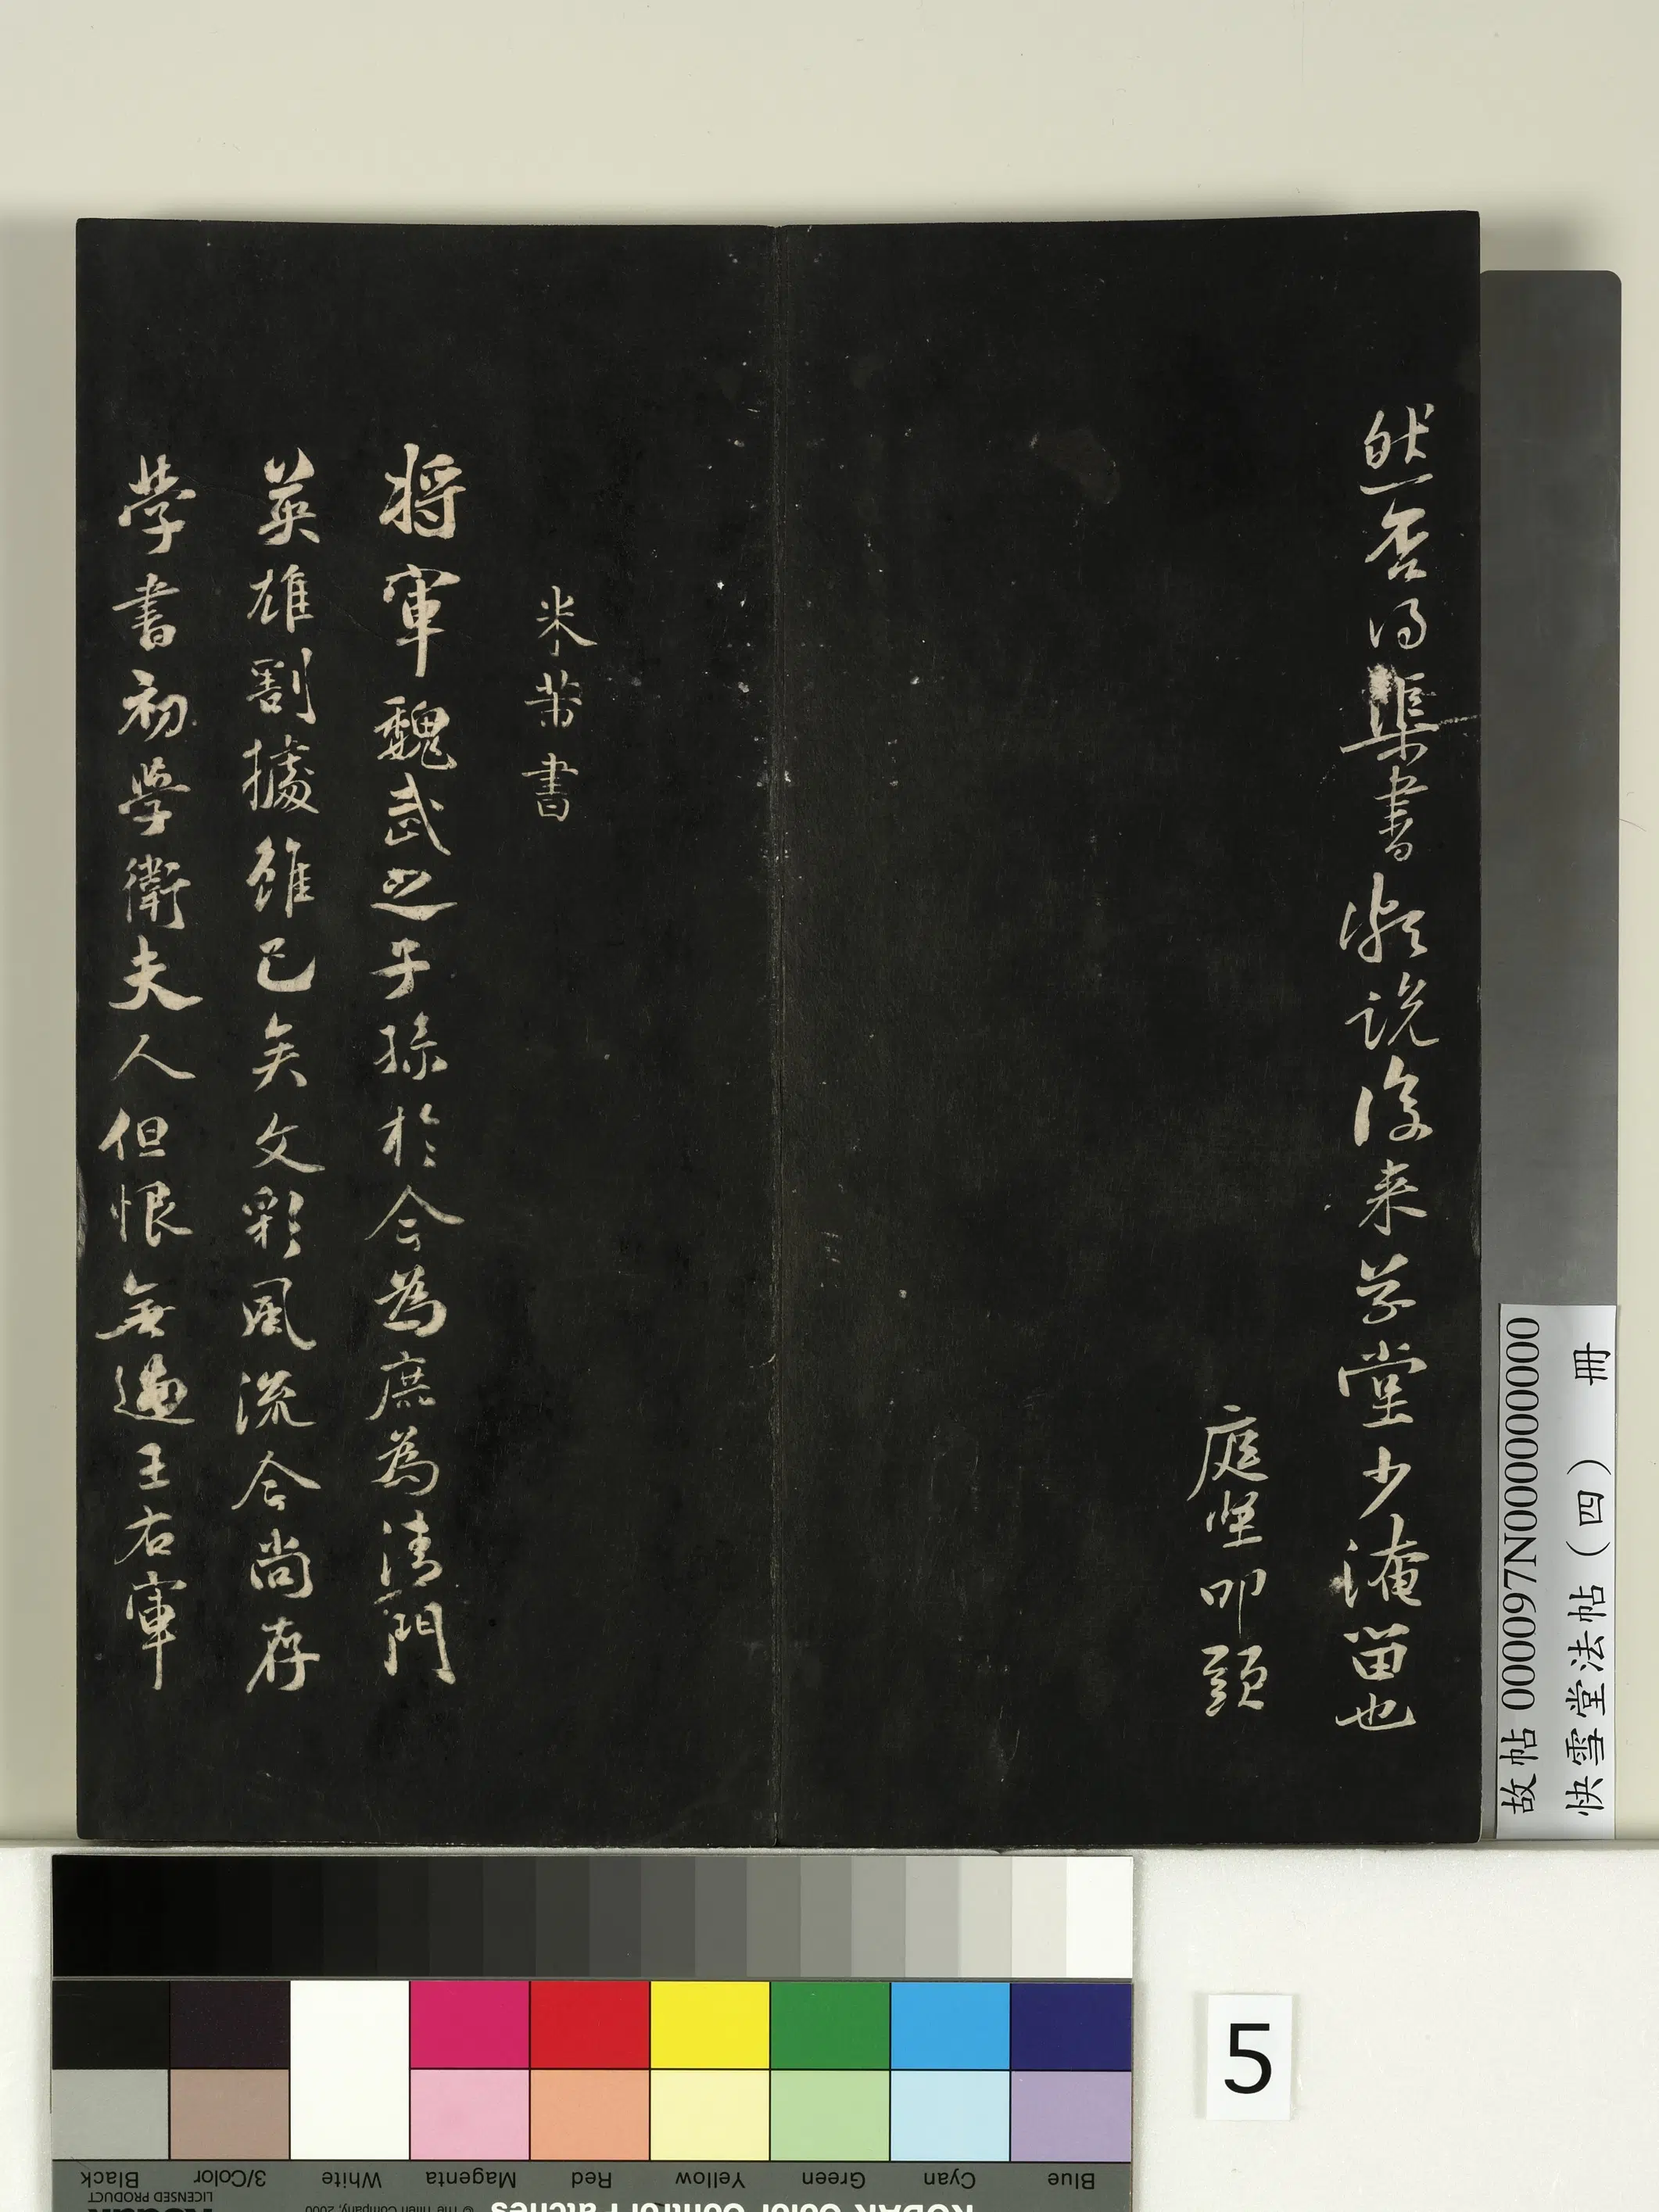 然否得渠書凝説復来草堂少淹留也
庭堅叩頭
米芾書
将軍魏武之子孫於今為庶為清門
英雄割據雖已矣文彩風流今尚存
學書初學衛夫人但恨無過王右軍
故帖 000097N000000000
快雪堂法帖（四） 冊
5
Blue
Cyan
Green
Yellow
Red
Magenta
White
3/Color
Black
KODAK Color Control Patches
© The Tiffen Company, 2000
LICENSED PRODUCT